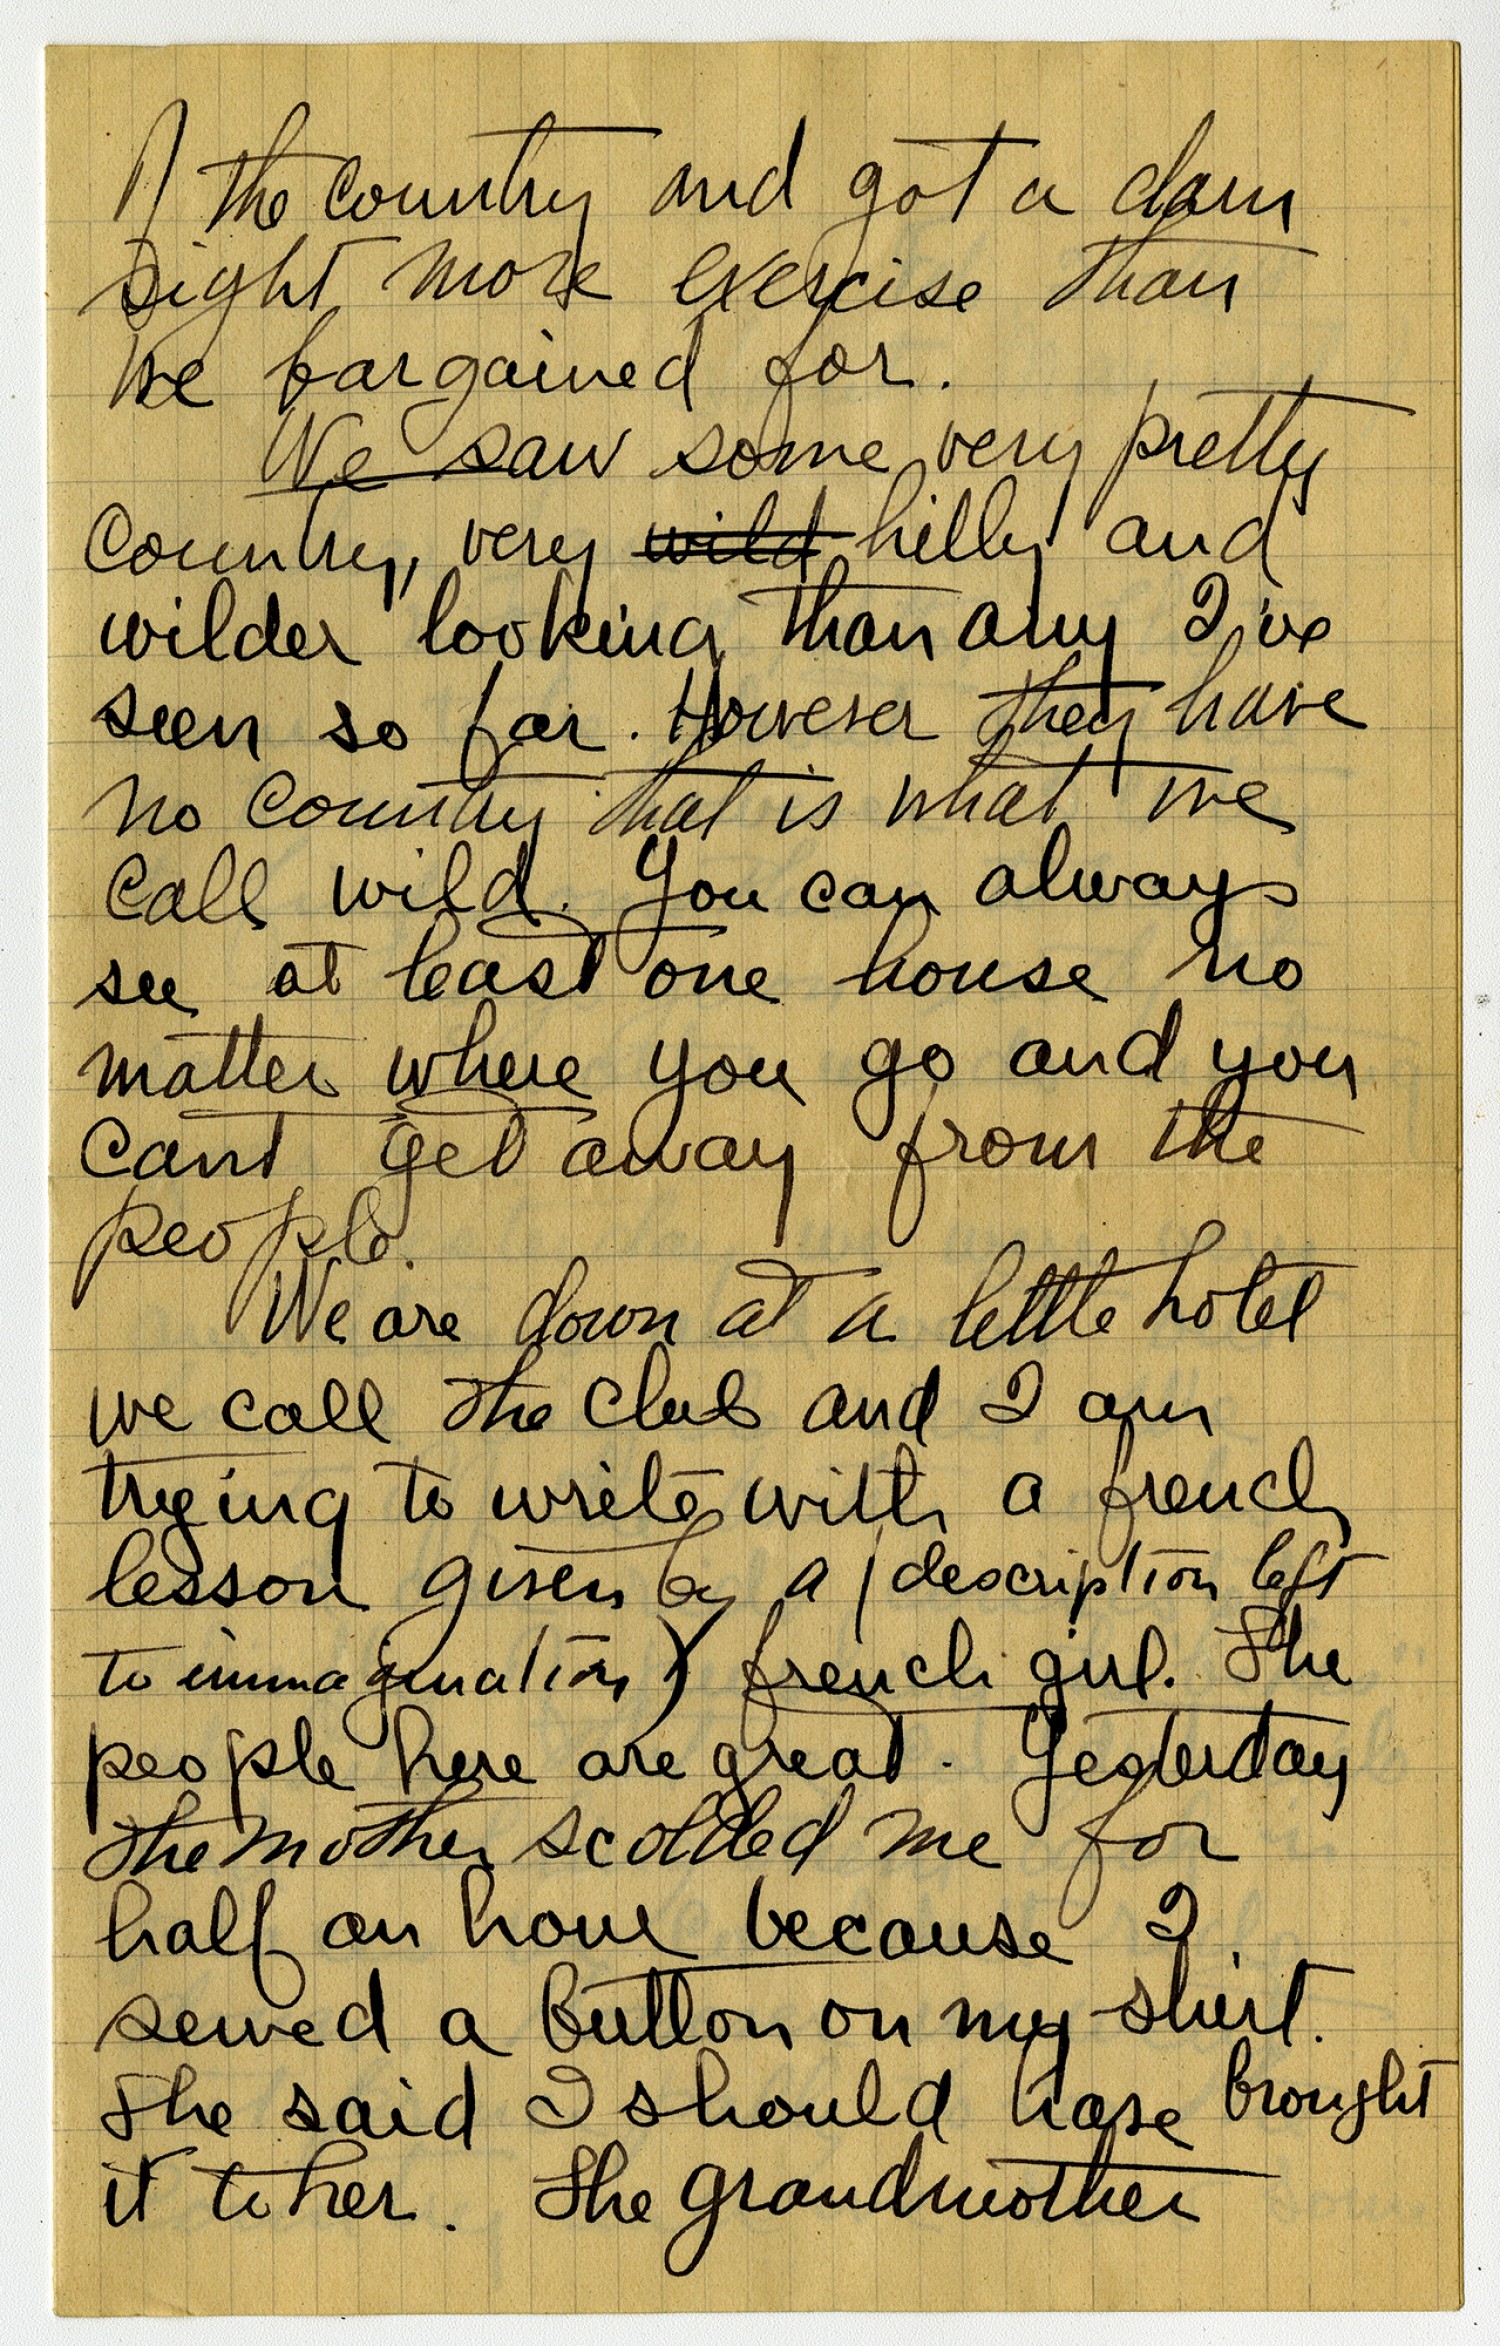 the country and got a darn
sight more exercise than
we bargained for.
We saw some very pretty
country, very wild hilly and
wilder looking than any I've
seen so far. However they have
no country that is what we
call wild. You can always
see at least one house no
matter where you go and you
cant get away from the
people.
We are down at a little hotel
we call the club and I am
trying to write with a french
lesson given by a (description left
to immagination) french girl. The
people here are great. Yesterday
the mother scolded me for
half an hour because I
sewed a button on my shirt.
She said I should have brought
it to her. The grandmother